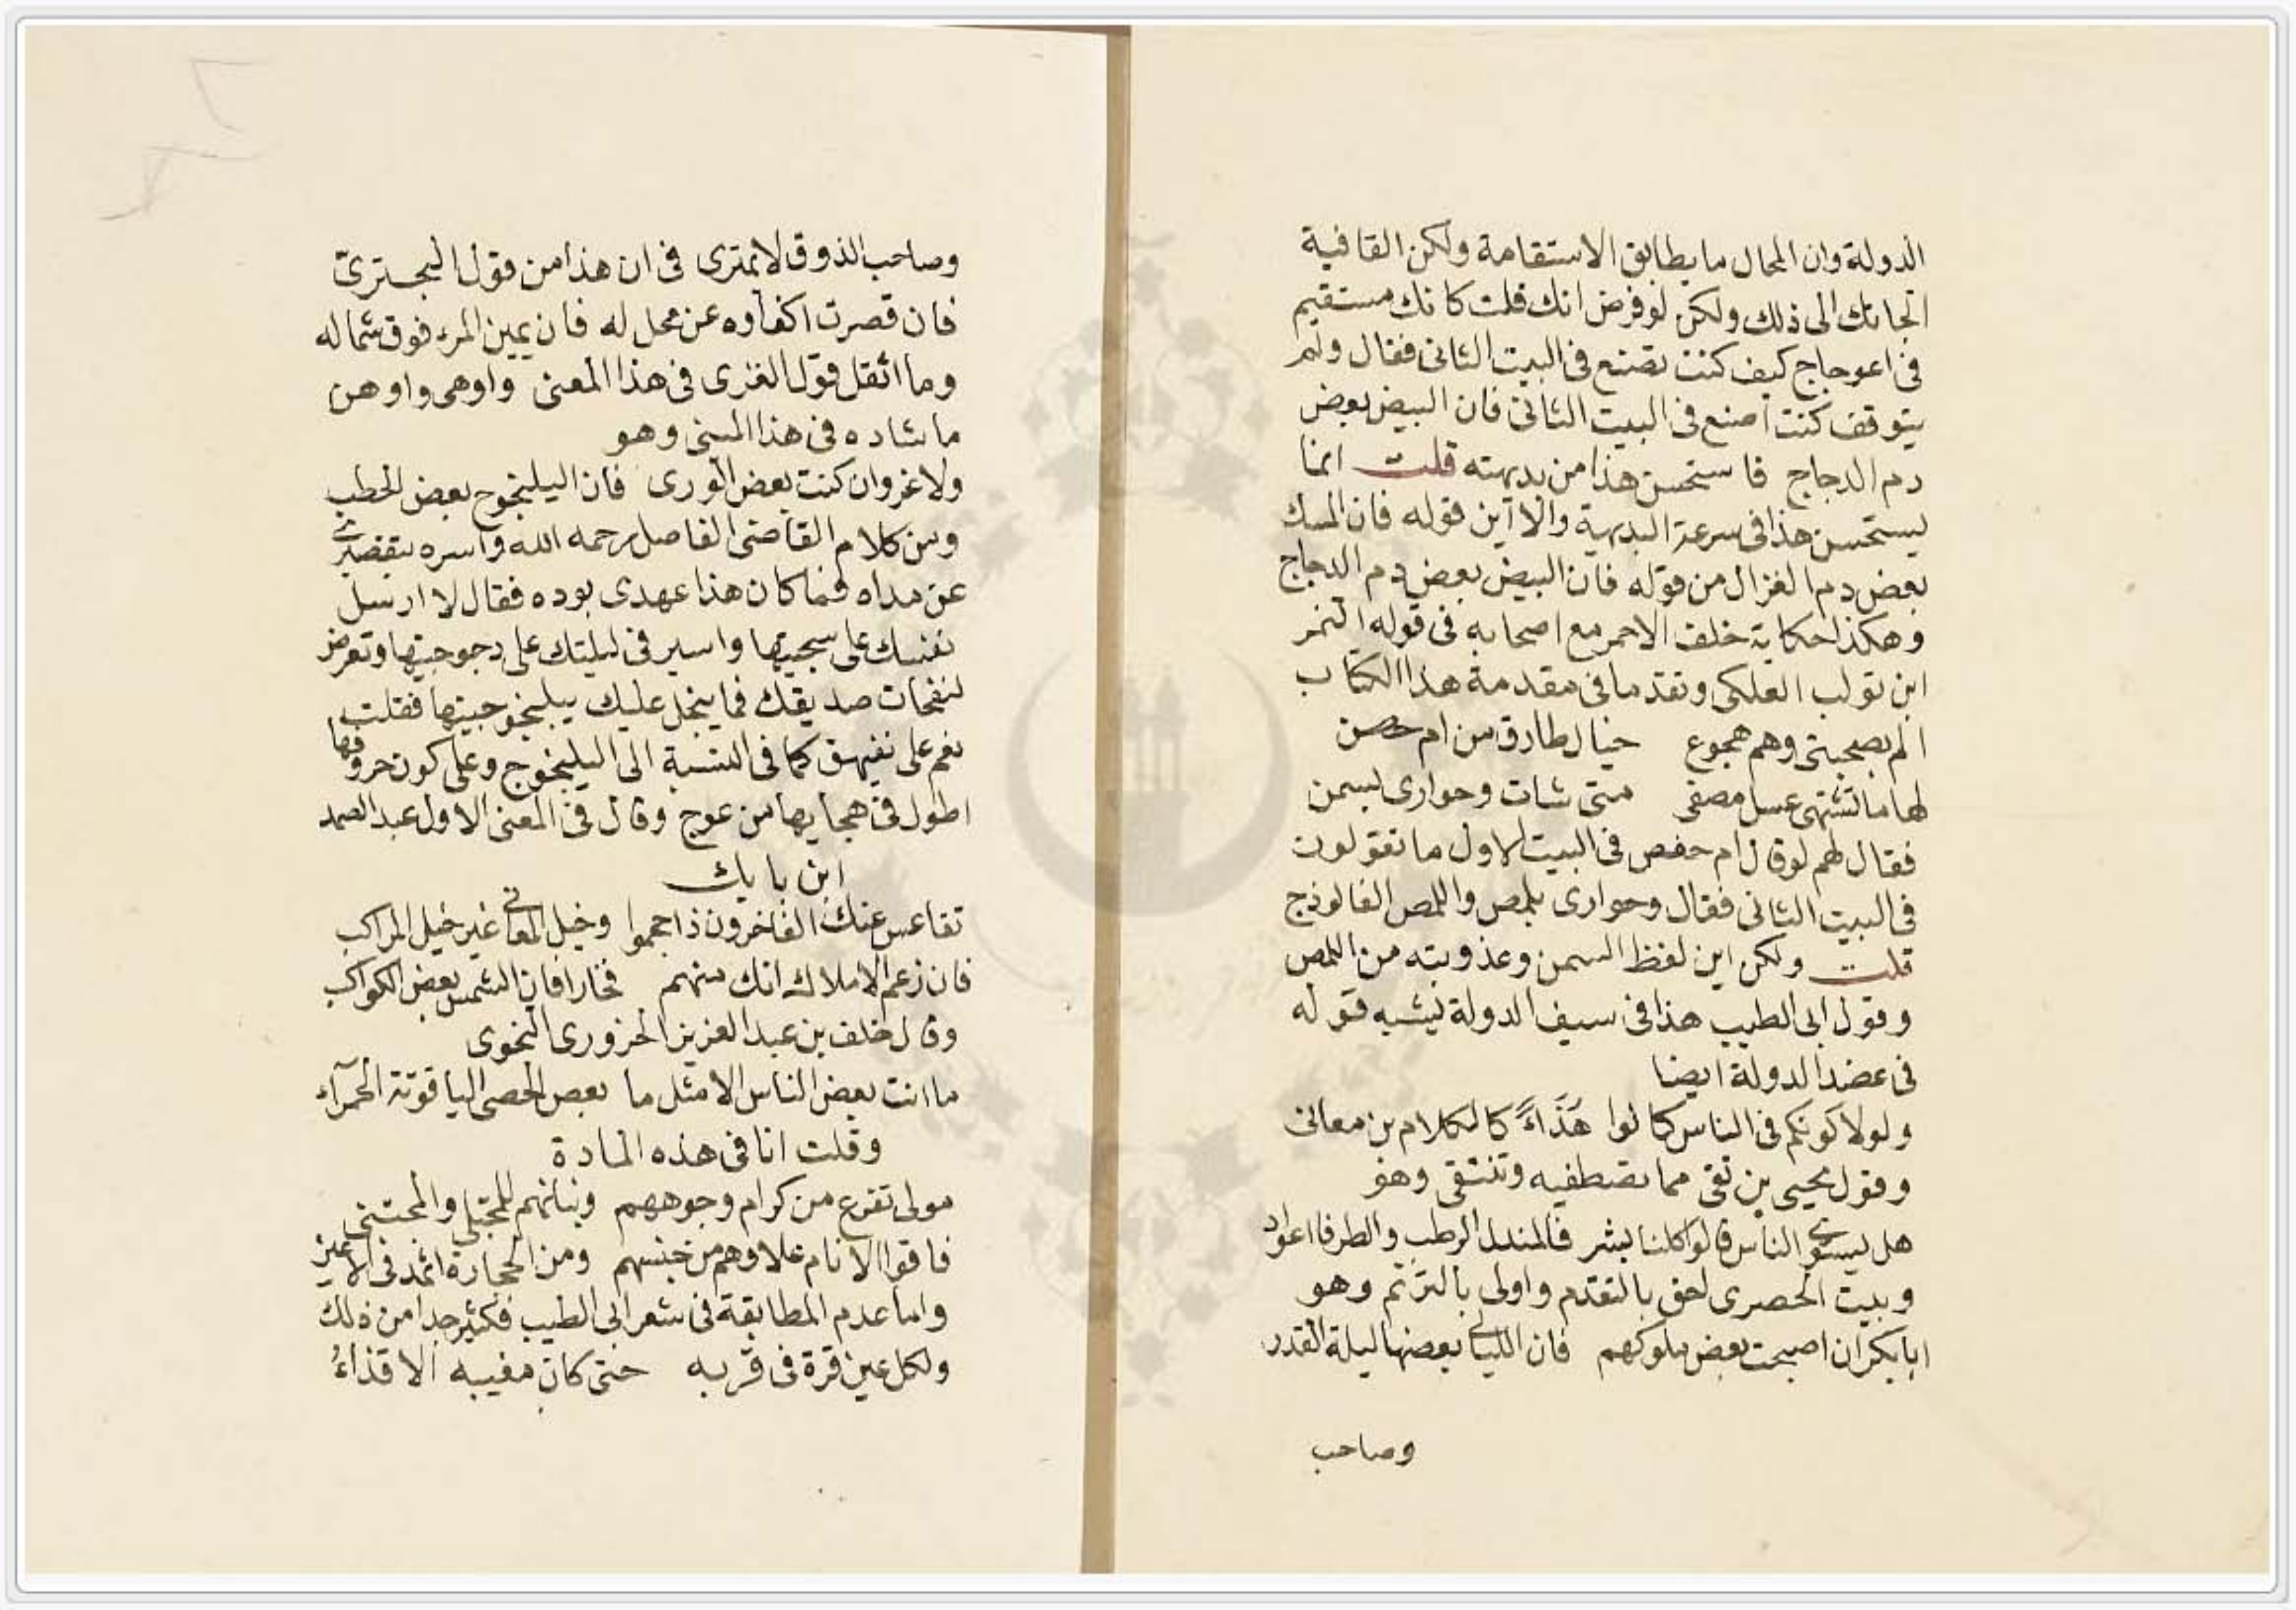 الدولة وان المحال ما يطابق الاستقامة ولكن القافية
الجاتك الى ذلك ولكن لو فرض انك قلت كانك مستقيم
فى اعوجاج كيف كنت تصنع فى البيت الثانى فقال ولم
يتوقف كنت اصنع فى البيت الثانى فان البيض بعض
دم الدجاج فاستحسن هذا من بديهته قلت انما
يستحسن هذا فى سرعة البديهة والا اين قوله فان المسك
بعض دم الغزال من قوله فان البيض بعض دم الدجاج
وهكذا حكاية خلف الاحمر مع اصحابه فى قوله النمر
ابن تولب العلكى وتقدما فى مقدمة هذا الكتاب
الم بصحبتى وهم هجوع خيال طارق من ام حصن
لها ما تشتهى عسل مصفى متى شات وحوارى بسمن
فقال لهم لو قال ام حفص فى البيت الاول ما تقولون
فى البيت الثانى فقال وحوارى بلمص واللمص الفالوذج
قلت ولكن اين لفظ السمن وعذوبته من اللمص
وقول ابى الطيب هذا فى سيف الدولة يشبه قوله
فى عضد الدولة ايضا
ولولا كونكم فى الناس كانوا هذاءً كالكلام بن معانى
وقول يحيى بن تقى مما تصطفيه وتنتقى وهو
هل يستوى الناس قالوا كلنا بشر فالمندل الرطب والطرفا اعواد
وبيت الحصرى احق بالتقدم واولى بالترنم وهو
ابا بكر ان اصبحت بعض ملوكهم فان الليالى بعضها ليلة القدر
وصاحب
وصاحب الذوق لا يمترى فى ان هذا من قول البحترىّ
فان قصرت اكفاوه عن محل له فان يمين المرء فوق شماله
وما اثقل قول الغزى فى هذا المعنى واوهى واوهن
ما شاده فى هذا المبنى وهو
ولا غرو ان كنت بعض الورى فان اليلنجوج بعض الحطب
ومن كلام القاضى الفاضل رحمه الله واسره بتقصيرى
عن مداه فما كان هذا عهدى بوده فقال لا ارسل
نفسك على سجيتها واسير فى ليلتك على دجوجيتها وتعرض
لنفحات صديقك فما يبخل عليك بيلنجوجيتها فقلت
نعم على نفيهق كما فى النسبة الى اليلنجوج وعلى كون حروفها
اطول فى هجايها من عوج وقال فى المعنى الاول عبد الصمد
ابن بابك
تقاعس عنك الفاخرون ذا حجموا وخيل المعانى غير خيل المراكب
فان زعم الاملاك انك منهم فخارا فان الشمس بعض الكواكب
وقال خلف بن عبد العزيز الحزورى النحوى
ما انت بعض الناس الا مثل ما بعض الحصى الياقوتة الحمرآء
وقلت انا فى هذه المادة
مولى تفرع من كرام وجوههم وبنانهم للمجتلى والمجتنى
فاقوا الانام علا وهم من جنسهم ومن الحجارة اثمد فى الاعين
واما عدم المطابقة فى شعر ابى الطيب فكثير جدا من ذلك
ولكل عين قرة فى قربه حتى كان مغيبه الاقذاءُ